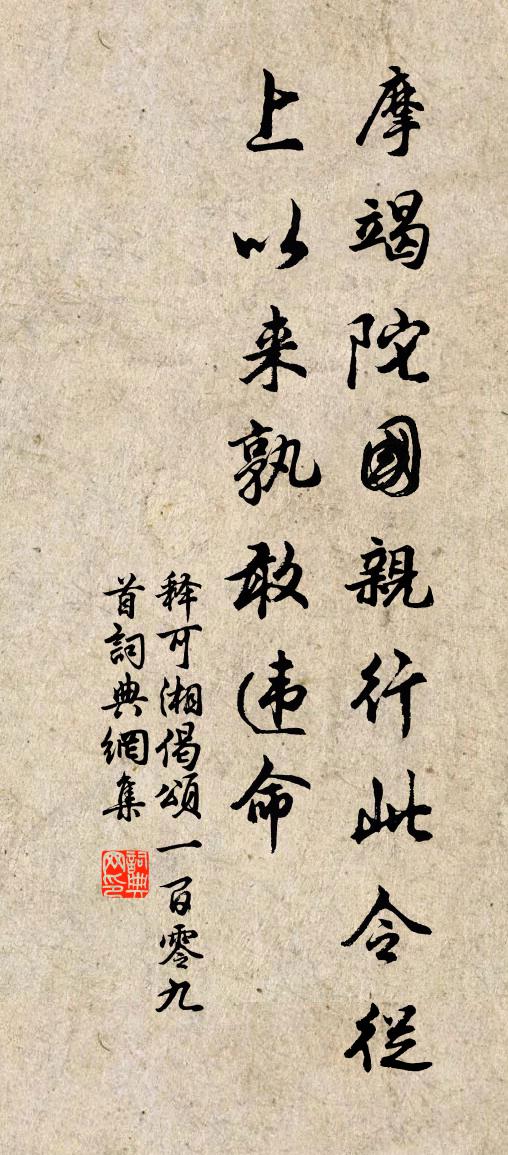 摩竭陀國親行此令從
上以来孰敢违命
释可湘偈頌一百零九
首詞典網集
詞典网印